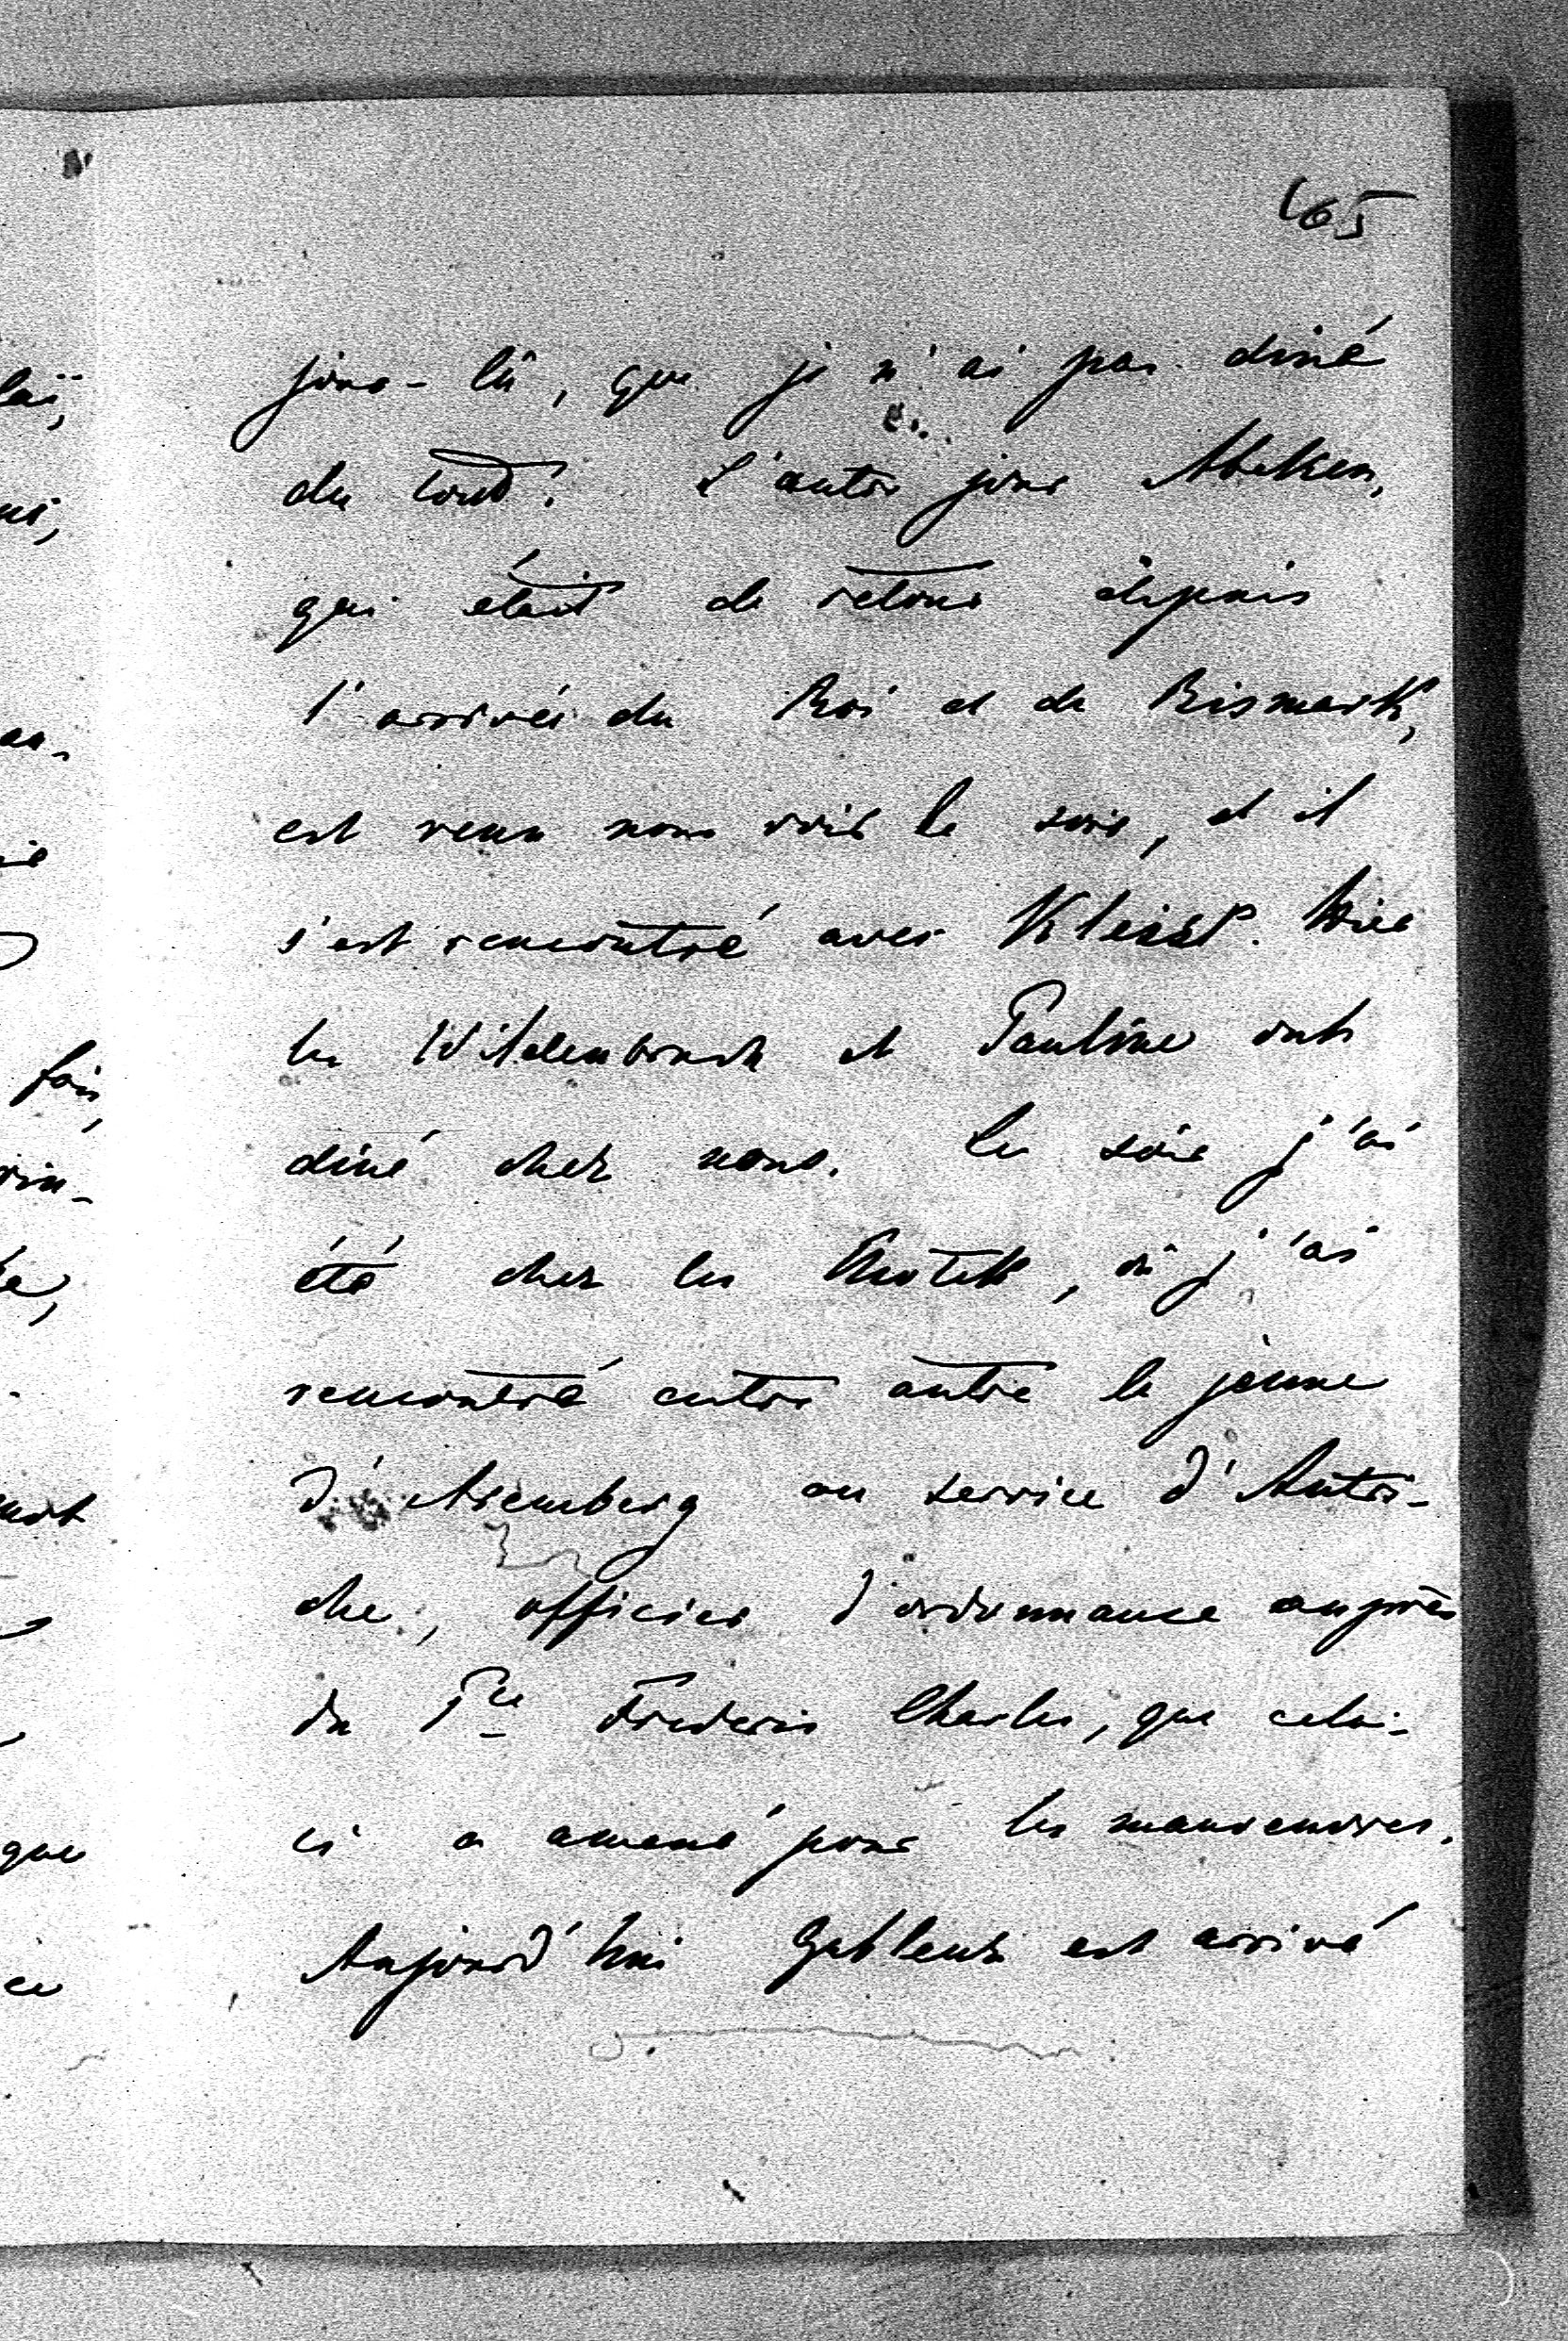 165
jour-là, que je n'ai pas diné
du tout. L'autre jour Abeken,
qui était de retour depuis
l'arrivée du Roi et de Bismark,
est venu nous voir le soir, et il
s'est rencontré avec Kleist. Hier
les Wildenbruch et Pauline ont
diné chez nous. Le soir j'ai
été chez les Chotek, où j'ai
rencontré entre autre le jeune
d'Aremberg au service d'Autri-
che, officier d'ordonnance auprès
du Pce Frederic Charles, que celui-
ci a amené pour les manoeuvres.
Aujourd'hui Gablenz est arrivé